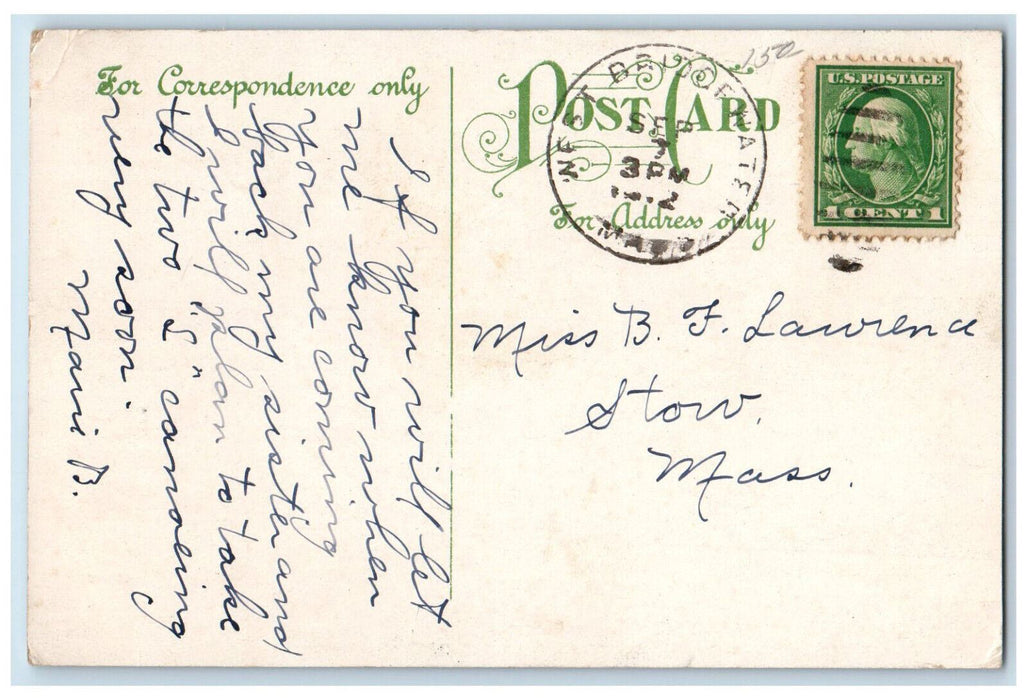 For Correspondence only
POST CARD
For Address only
WEST BRIDGEWATER
SEP
3
3 PM
1912
MASS.
1502
U.S. POSTAGE
1 CENT 1
If you will let
me know when
you are coming
back my sister and
I will plan to take
the two "L" canoeing
very soon.
Marie B.
Miss B. F. Lawrence
Stow.
Mass.